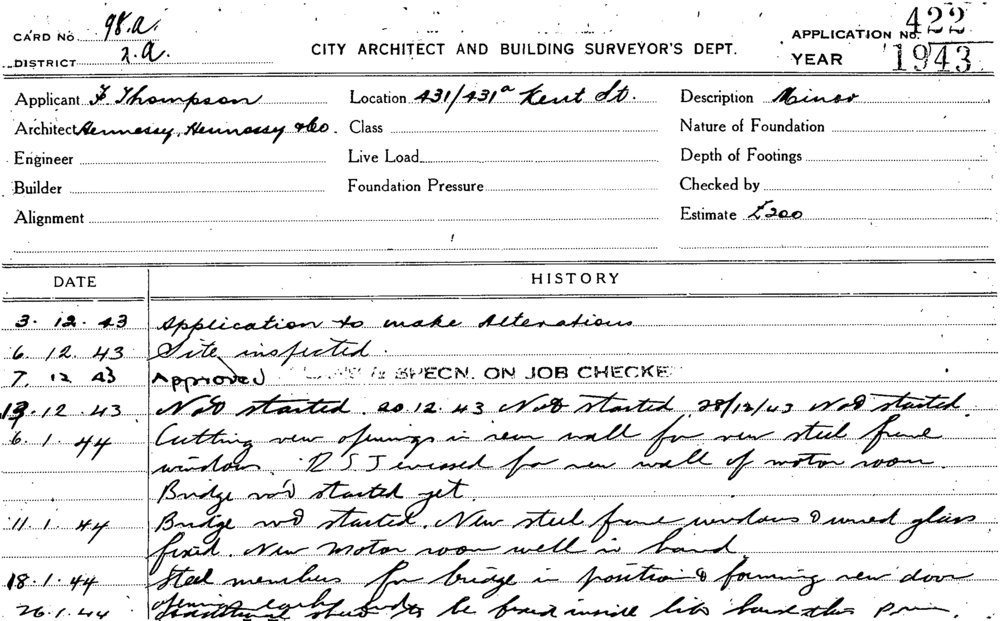 CARD NO. 98.a.
DISTRICT 2.a.
CITY ARCHITECT AND BUILDING SURVEYOR'S DEPT.
APPLICATION NO. 422
YEAR 1943
Applicant F Thompson Location 431/431a Kent St. Description Minor
Architect Hennessy, Hennessy & Co. Class Nature of Foundation
Engineer Live Load Depth of Footings
Builder Foundation Pressure Checked by
Alignment Estimate £200
DATE HISTORY
3. 12. 43 Application to make Alterations
6. 12. 43 Site inspected.
7. 12 43 Approved SPECN. ON JOB CHECKE
13. 12. 43 Not started. 20.12.43 Not started, 28/12/43 Not started.
6. 1. 44 Cutting new openings in rear wall for new steel frame
windows. R S J for new wall of motor room.
Bridge not started yet.
11. 1. 44 Bridge not started. New steel frame windows & wired glass
fixed. New Motor room well in hand.
18. 1. 44 Steel members for bridge in position & forming new door
26. 1. 44 to be fixed inside